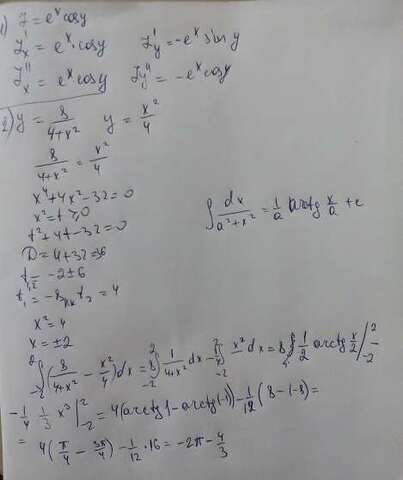 1) Z = e^x cos y
Z'_x = e^x · cos y    Z'_y = -e^x sin y
Z''_x = e^x · cos y    Z_y'' = -e^x cos y
2) y = 8/(4+x²)    y = x²/4
8/(4+x²) = x²/4
x⁴ + 4x² - 32 = 0
x² = t ≥ 0
t² + 4t - 32 = 0    ∫ dx/(a²+x²) = 1/a arctg x/a + c
D = 4 + 32 = 36
t₁,₂ = -2 ± 6
t₁ = -8, t₂ = 4
x² = 4
x = ±2
∫₋₂² (8/(4+x²) - x²/4) dx = 8 ∫₋₂² 1/(4+x²) dx - 1/4 ∫₋₂² x² dx = 8 · 1/2 arctg x/2 |₋₂²
- 1/4 · 1/3 x³ |₋₂² = 4(arctg 1 - arctg(-1)) - 1/12 (8 - (-8)) =
= 4(π/4 - 3π/4) - 1/12 · 16 = -2π - 4/3